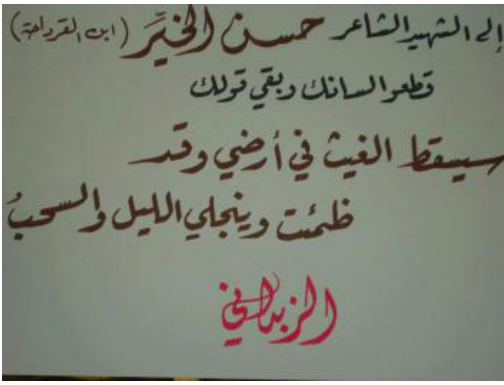 إلى الشهيد الشاعر حسن الخيَّر (ابن القرداحة)
قطعوا لسانك وبقي قولك
سيسقط الغيث في أرضي وقد
ظمئت وينجلي الليل والسحبُ
الزبداني